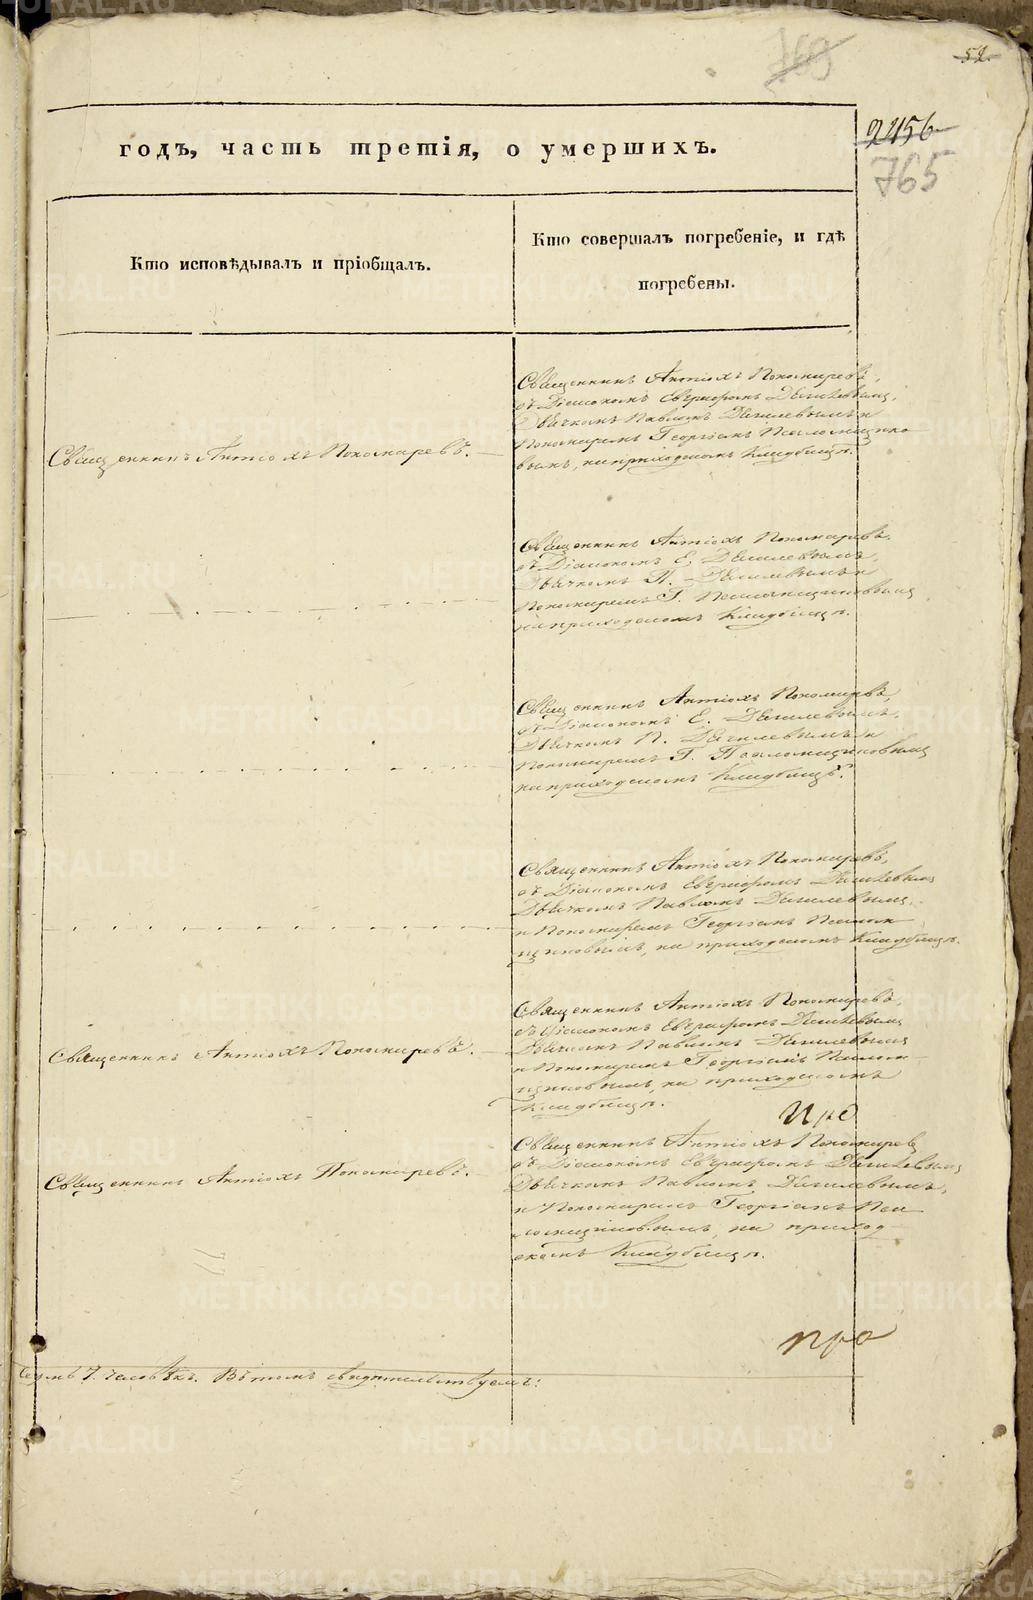 769
52.
2456
765
годъ, часть третія, о умершихъ.
Кто исповѣдывалъ и пріобщалъ.
Кто совершалъ погребеніе, и гдѣ
погребены.
Священникъ Антіохъ Пономаревъ.
Священникъ Антіохъ Пономаревъ,
съ Діакономъ Евграфомъ
Дьячкомъ Павломъ
Пономаремъ Георгіемъ Псаломщико
вымъ, на приходскомъ Кладбищѣ.
Священникъ Антіохъ Пономаревъ,
съ Діакономъ Е.
Дьячкомъ П.
Пономаремъ Г. Псаломщиковымъ
на приходскомъ Кладбищѣ.
Священникъ Антіохъ Пономаревъ,
съ Діакономъ Е.
Дьячкомъ П.
Пономаремъ Г. Псаломщиковымъ
на приходскомъ Кладбищѣ.
Священникъ Антіохъ Пономаревъ,
съ Діакономъ Евграфомъ
Дьячкомъ Павломъ
и Пономаремъ Георгіемъ Псалом
щиковымъ, на приходскомъ Кладбищѣ.
Священникъ Антіохъ Пономаревъ.
Священникъ Антіохъ Пономаревъ,
съ Діакономъ Евграфомъ
Дьячкомъ Павломъ
и Пономаремъ Георгіемъ Псалом
щиковымъ, на приходскомъ
Кладбищѣ.
Священникъ Антіохъ Пономаревъ.
Священникъ Антіохъ Пономаревъ
съ Діакономъ Евграфомъ
Дьячкомъ Павломъ
и Пономаремъ Георгіемъ Пса
ломщиковымъ, на приход
скомъ Кладбищѣ.
7. человѣкъ. Въ томъ свидѣтельствуемъ:
METRIKI.GASO-URAL.RU